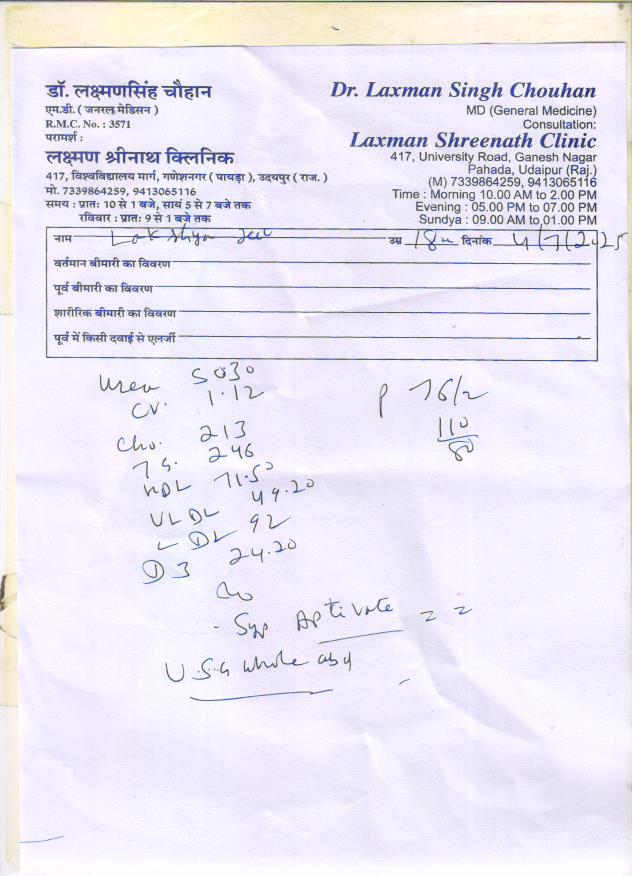 डॉ. लक्ष्मणसिंह चौहान
एम.डी. ( जनरल मेडिसन )
R.M.C. No. : 3571
परामर्श :
लक्ष्मण श्रीनाथ क्लिनिक
417, विश्वविद्यालय मार्ग, गणेशनगर ( पायड़ा ), उदयपुर ( राज. )
मो. 7339864259, 9413065116
समय : प्रातः 10 से 1 बजे, सायं 5 से 7 बजे तक
रविवार : प्रातः 9 से 1 बजे तक
Dr. Laxman Singh Chouhan
MD (General Medicine)
Consultation:
Laxman Shreenath Clinic
417, University Road, Ganesh Nagar
Pahada, Udaipur (Raj.)
(M) 7339864259, 9413065116
Time : Morning 10.00 AM to 2.00 PM
Evening : 05.00 PM to 07.00 PM
Sundya : 09.00 AM to 01.00 PM
नाम Lakshya उम्र 18 दिनांक 4/7/2025
वर्तमान बीमारी का विवरण
पूर्व बीमारी का विवरण
शारीरिक बीमारी का विवरण
पूर्व में किसी दवाई से एलर्जी
Urea 5030
Cr. 1.12
Cho. 213
TG. 246
HDL 71.50
VLDL 49.20
LDL 92
D3 24.20
P 76/2
110/80
- Syp Aptivate
U.S.G whole abd